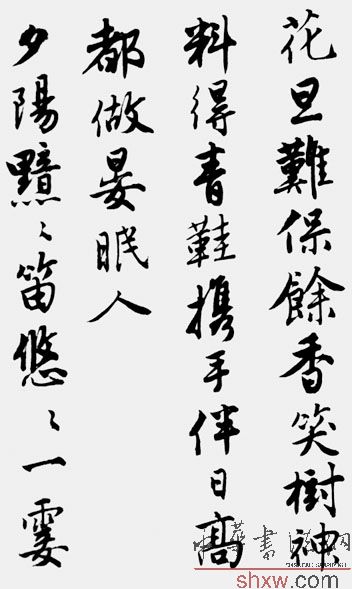 花旦難保餘香笑樹神
料得青鞋携手伴日高
都做晏眠人
夕陽黯〻笛悠〻一霎
中華書法網
shxw.com